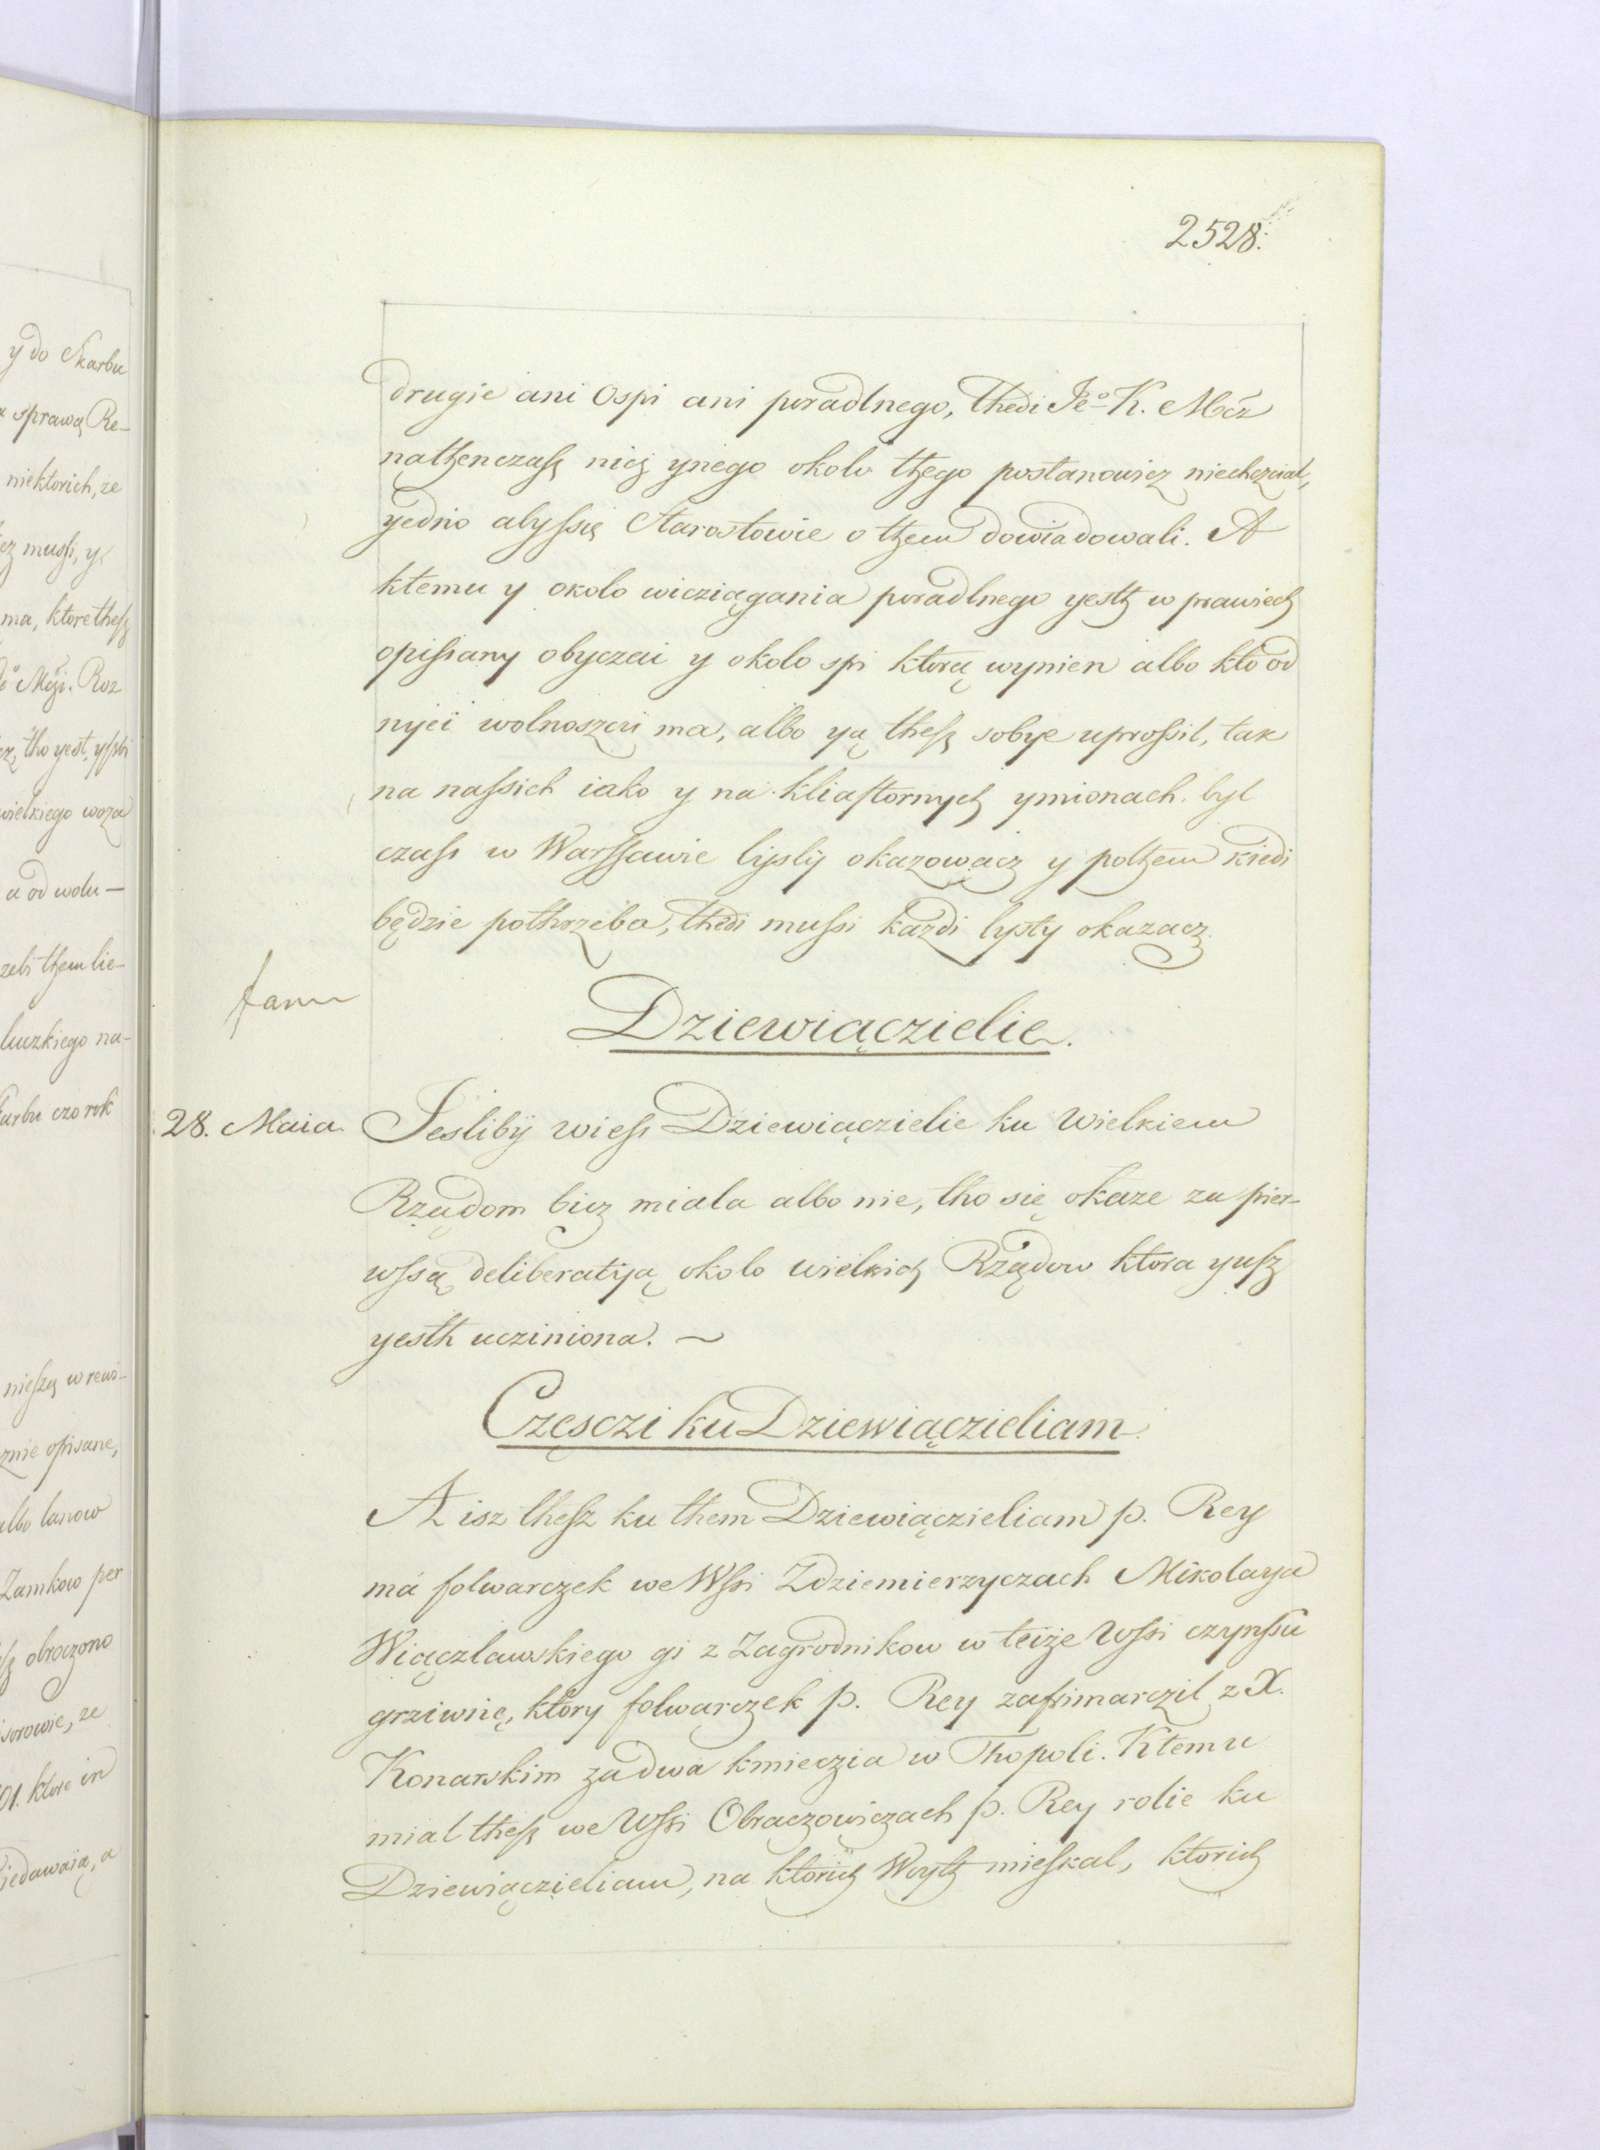 2528.
drugie ani Ospi ani poradlnego, thedi Je° K. Mcz
nathenczasz nicz ynego okolo thego postanowicz niechcział,
yedno abyssię Starostowie o them dowiadowali. A
ktemu y okolo wicziągania poradlnego yesth w prawiech
opissany obyczai y okolo spi ktorą wynien albo kto od
nyei wolnosczi ma, albo yą thesz sobye uprossil, tak
na nassich iako y na kliasztornych ymionach. byl
czass w Warssawie lysty okazowacz y pothem kiedi
będzie pothrzeba, thedi mussi kazdi lysty okazacz.
Dziewiączielie.
28. Maia
Jesliby wiess Dziewiączielie ku Wielkiem
Rządom bicz miala albo nie, tho się okaze za pier-
wssą deliberatyą okolo wielkich Rządow ktora yusz
yesth ucziniona. ~
Częsczi ku Dziewiączieliam.
A isz thesz ku them Dziewiączieliam p. Rey
má folwarczek we Wssi Zdziemierzyczach Mikolaya
Wiączlawskiego gi z Zagrodnikow w teiże Wssi czynssu
grziwnię, ktory folwarczek p. Rey zafrimarczil z X.
Konarskim za dwa kmieczia w Thopoli. Ktemu
mial thesz we Wssi Obraczowiczach p. Rey rolie ku
Dziewiączieliam, na ktorich Woyth mieskal, ktorich
y do Skarbu
sprawą Re-
niektorich, ze
mussi, y
ma, ktore thesz
Mczi. Roz
tho yest, yssbi
wielkiego woza
a od wolu —
them lie-
luczkiego na-
czo rok
w rewi-
opisane,
albo lanow
Zamkow per
obroczono
ze
ktore in
a